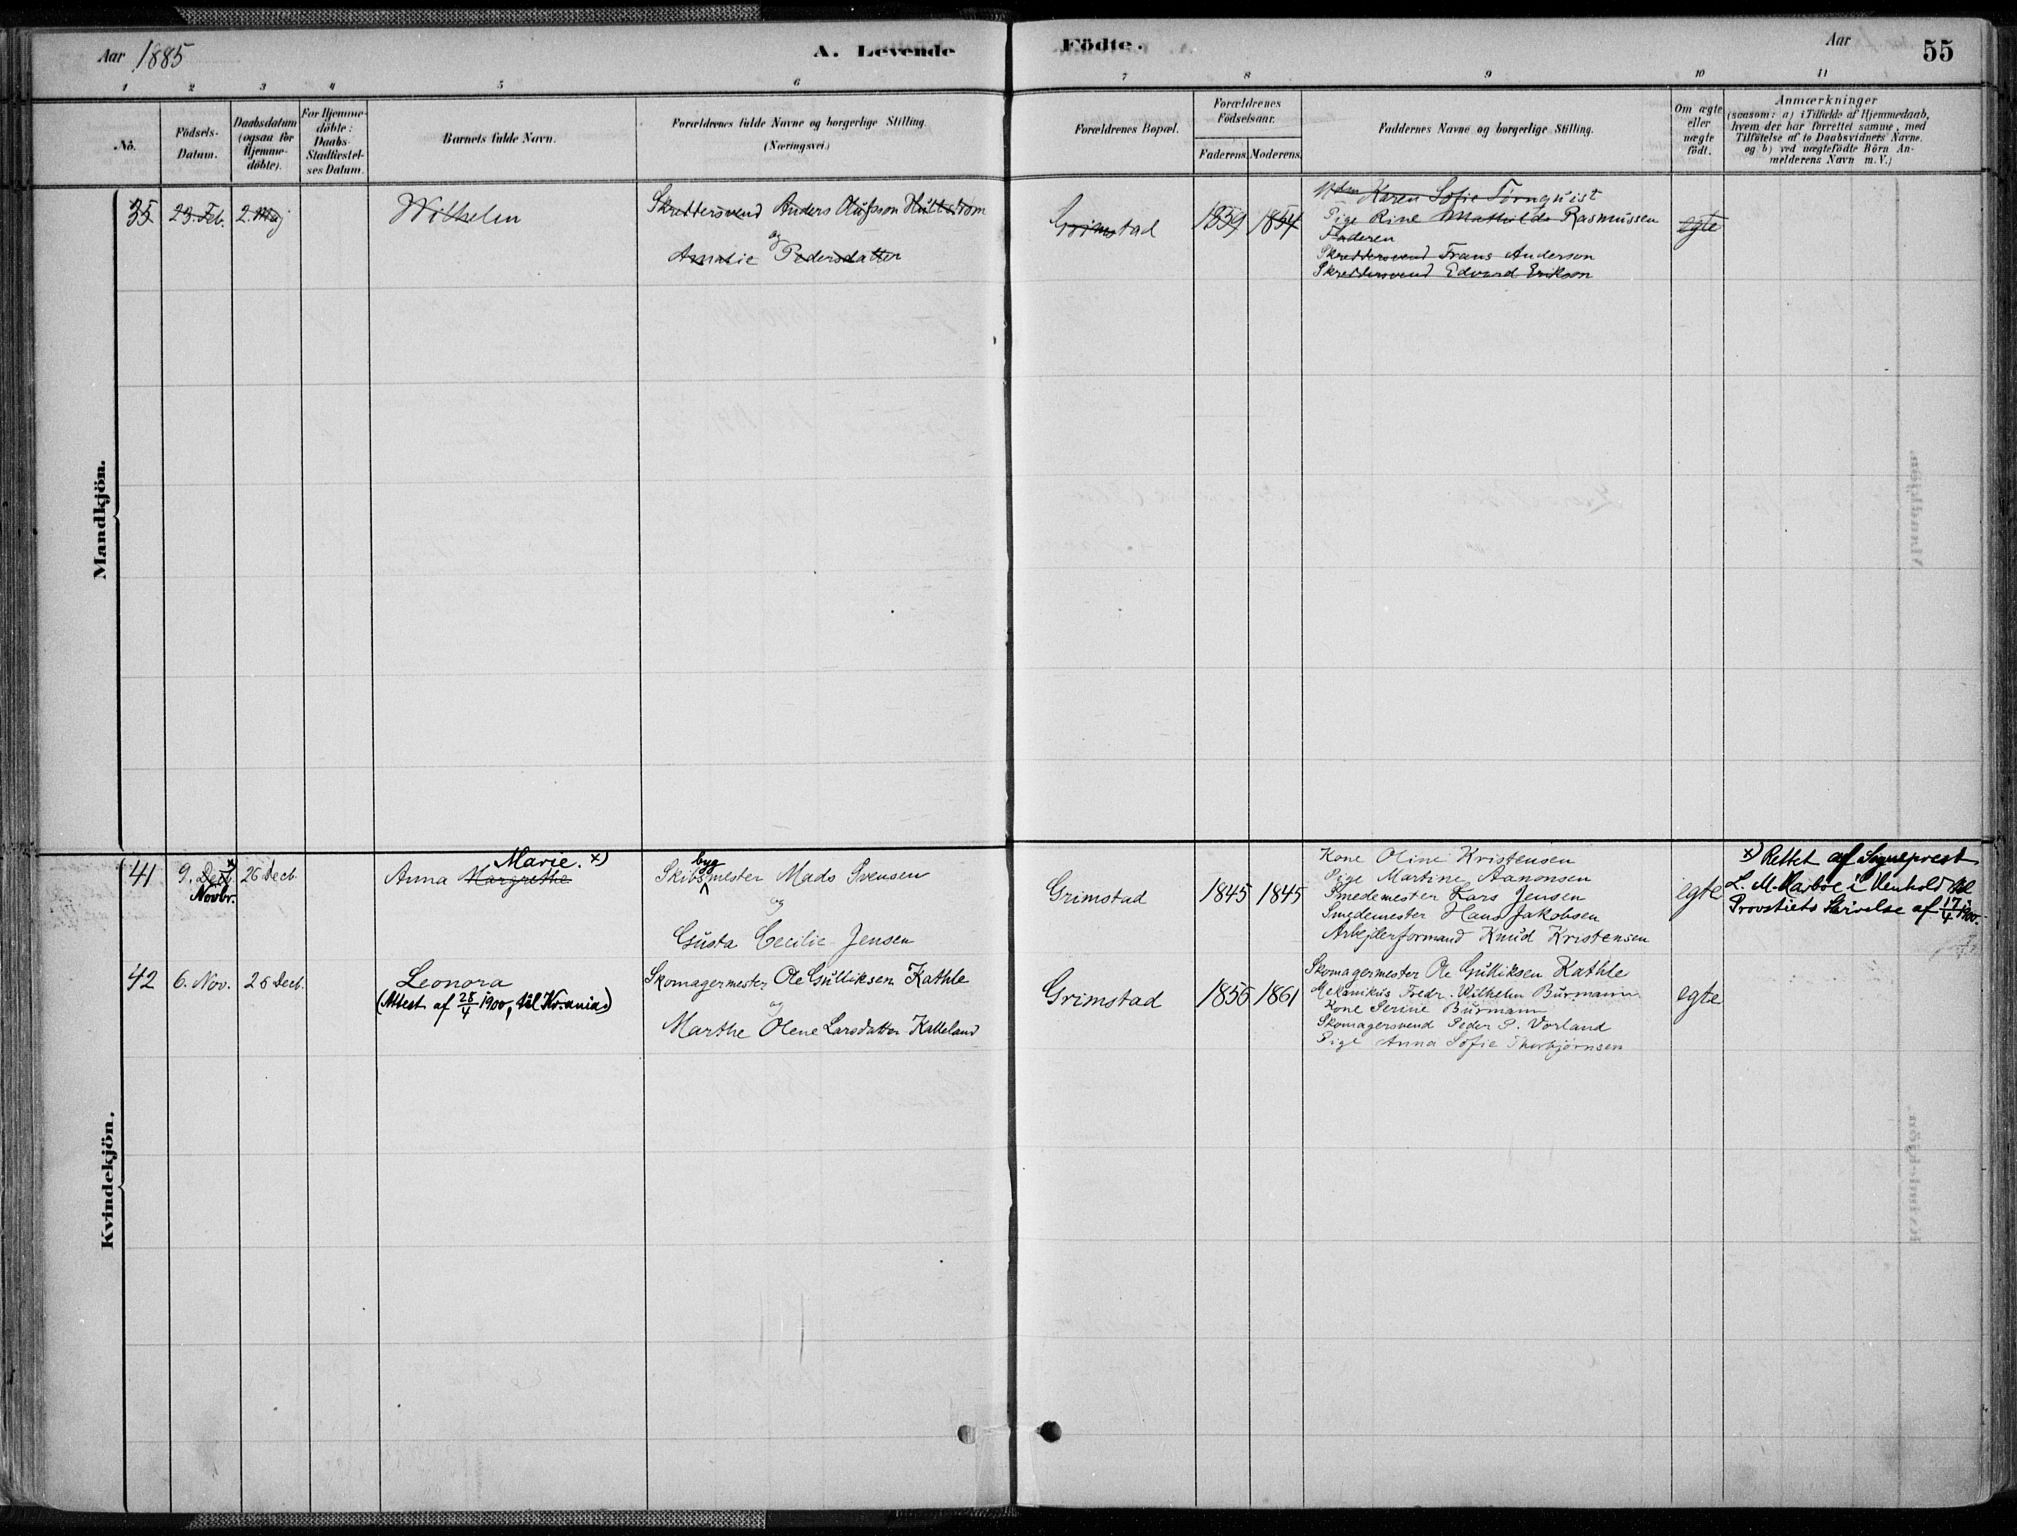 Aar 1885
A. Levende Födte.
Aar
55
1 2 3 4 5 6 7 8 9 10 11
No.
Födsels-Datum.
Daabsdatum (ogsaa for Hjemme-döbte).
For Hjemme-döbte: Daabs-Stadfæstel-ses Datum.
Barnets fulde Navn.
Forældrenes fulde Navne og borgerlige Stilling (Næringsvei.)
Forældrenes Bopæl.
Forældrenes Födselsaar.
Faderens. Moderens.
Faddernes Navne og borgerlige Stilling.
Om ægte eller uægte födt.
Anmærkninger
(saasom: a) i Tilfælde af Hjemmedaab, hvem der har forrettet samme, med Tilföielse af to Daabsvidners Navne, og b) ved uægtefödte Börn Anmelderens Navn m. V.)
Mandkjön.
35 23. Feb. 2. Maj
Wilhelm
Skreddersvend Anders Olufsson Hultstrøm
og
Amalie Pedersdatter
Grimstad
1859 1854
Karen Sofie Tørnquist
Pige Rine Mathilde Rasmussen
Faderen
Skreddersvend Frans Anderson
Skreddersvend Edvard Erikson
egte
Kvindekjön.
41 9. Decb. x Novbr. 26 Decb.
Marie. x)
Anna Margrethe
byg
Skibsmester Mads Svensen
og
Gusta Cecilie Jensen
Grimstad
1845 1845
Kone Oline Kristensen
Pige Martine Aanonsen
Smedemester Lars Jensen
Smedemester Hans Jakobsen
Arbejderformand Knud Kristensen
egte
x) Rettet af Sogneprest
L. M. i Henhold til
Provstiets Skrivelse af 17/4 1900.
42 6. Nov. 26 Decb.
Leonora
(Attest af 28/4 1900, til Kr.ania)
Skomagermester Ole Gulliksen Kathle
og
Marthe Olene Larsdatter Kalleland
Grimstad
1855 1861
Skomagermester Ole Gulliksen Kathle
Mekanikus Fredr. Wilhelm Burmann
Kone Serine Burmann
Skomagersvend Peder P. Vorland
Pige Anna Sofie Thorbjørnsen
egte